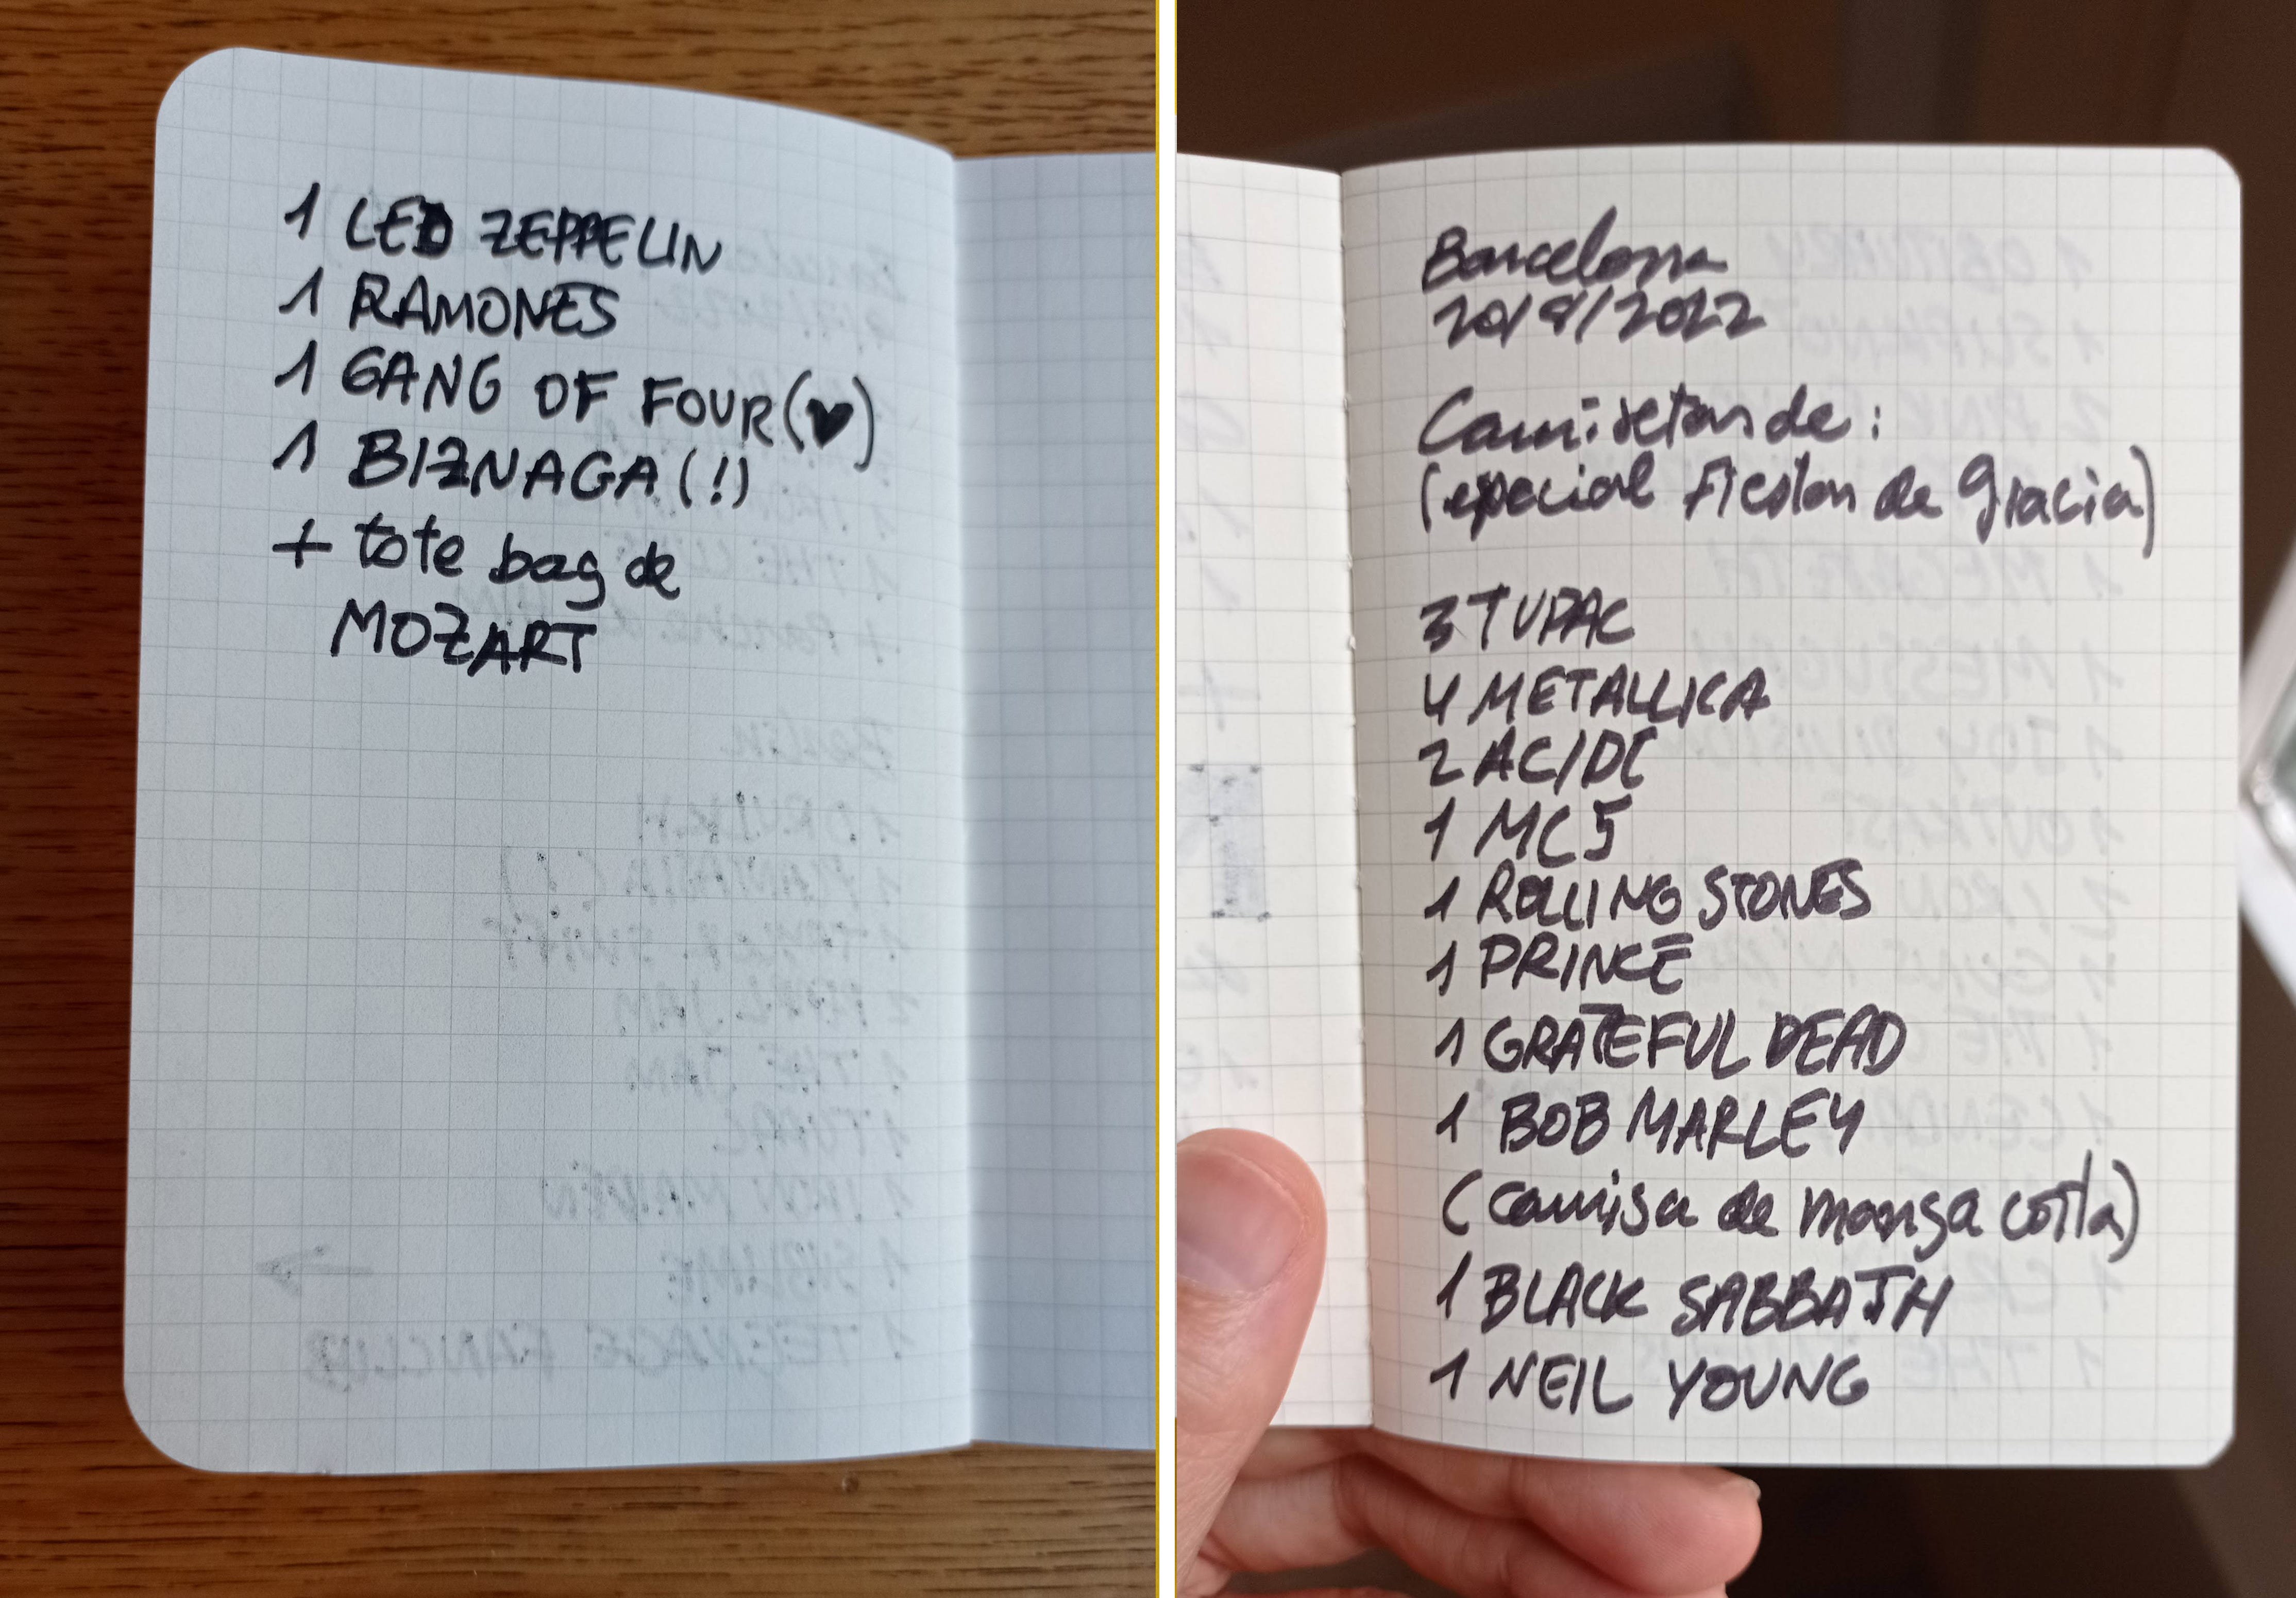 1 LED ZEPPELIN
1 RAMONES
1 GANG OF FOUR (♥)
1 BIZNAGA (!)
+ tote bag de
MOZART
Barcelona
20/8/2022
Camisetas de:
(especial Fiestas de Gracia)
3 TUPAC
4 METALLICA
2 AC/DC
1 MC5
1 ROLLING STONES
1 PRINCE
1 GRATEFUL DEAD
1 BOB MARLEY
(camisa de manga corta)
1 BLACK SABBATH
1 NEIL YOUNG